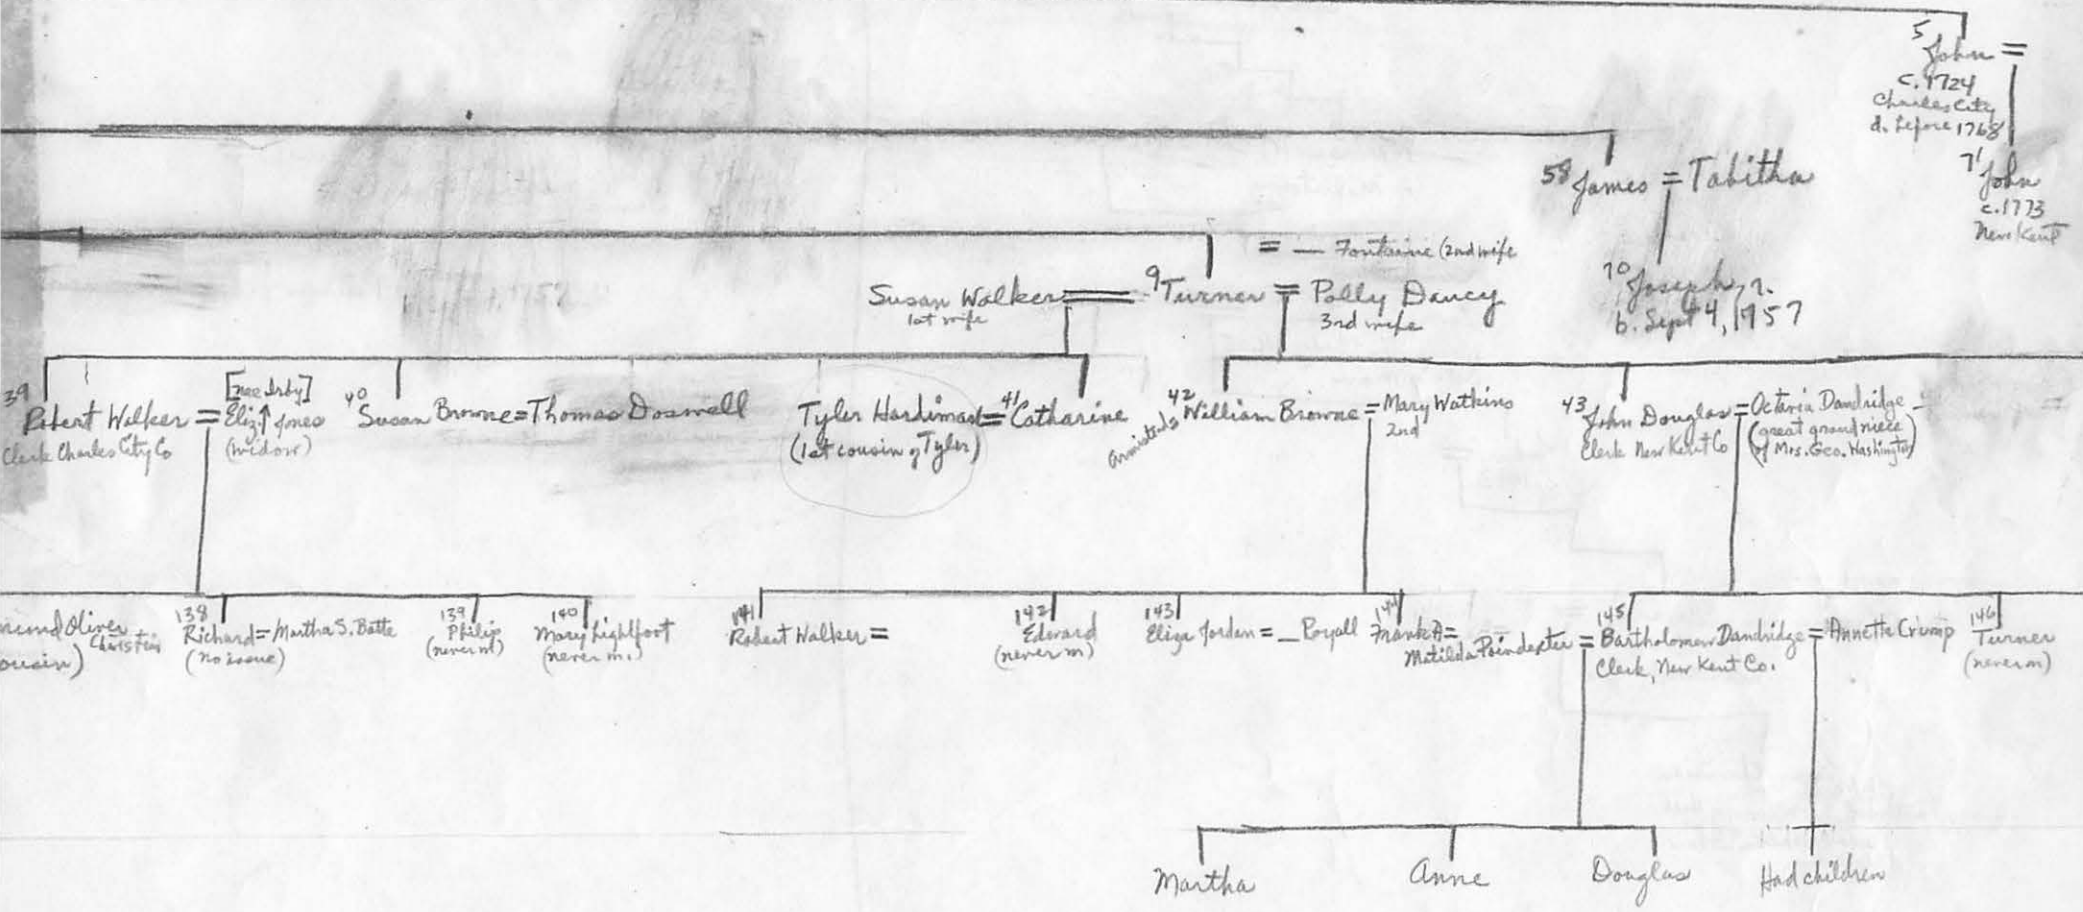 5 John =
c. 1724
Charles City
d. before 1768
58 James = Tabitha
71 John
c. 1773
New Kent
= — Fontaine (2nd wife
Susan Walker = 9 Turner = Polly Dancy
1st wife
3rd wife
70 Joseph,
b. Sept 4, 1757
39 Robert Walker = Eliz. ↑ Jones
[nee Irby]
Clerk Charles City Co
(widow)
40 Susan Browne = Thomas Doswell
Tyler Hardiman = 41 Catharine
(1st cousin of Tyler)
42 William Browne = Mary Watkins
Armisteads
2nd
43 John Douglas = Octavia Dandridge
Clerk New Kent Co
(great grand niece
of Mrs. Geo. Washington)
Oliver
Christian
138 Richard = Martha S. Batte
(no issue)
139 Philip
(never m)
140 Mary Lightfoot
(never m.)
141 Robert Walker =
142 Edward
(never m)
143 Eliza Jordan = — Royall
144 Frank A =
Matilda Poindexter = 145 Bartholomew Dandridge = Annette Crump
Clerk, New Kent Co.
146 Turner
(never m)
Martha
Anne
Douglas
Had children